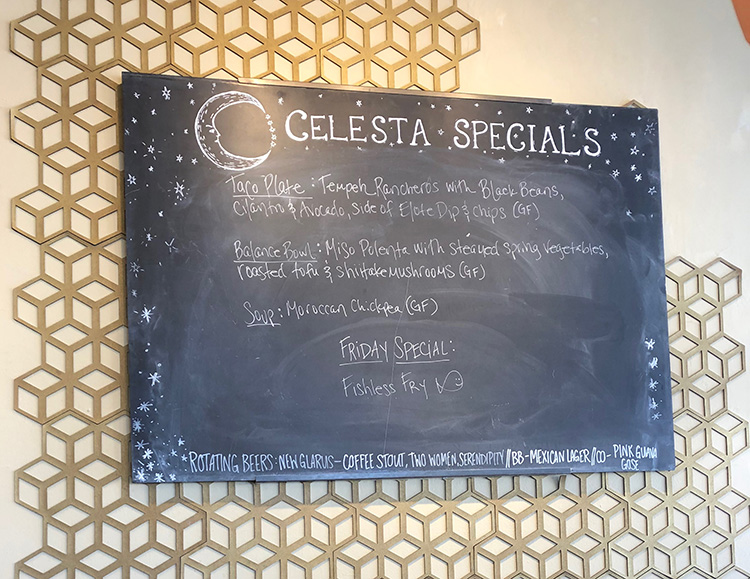 CELESTA SPECIALS
Taco Plate: Tempeh Rancheros with Black Beans,
Cilantro & Avocado, side of Elote Dip & Chips (GF)
Balance Bowl: Miso Polenta with steamed spring vegetables,
roasted tofu & shiitake mushrooms (GF)
Soup: Moroccan Chickpea (GF)
FRIDAY SPECIAL:
Fishless FRY
ROTATING BEERS: NEW GLARUS - COFFEE STOUT, TWO WOMEN, SERENDIPITY // BB - MEXICAN LAGER // CO - PINK GUAVA
GOSE